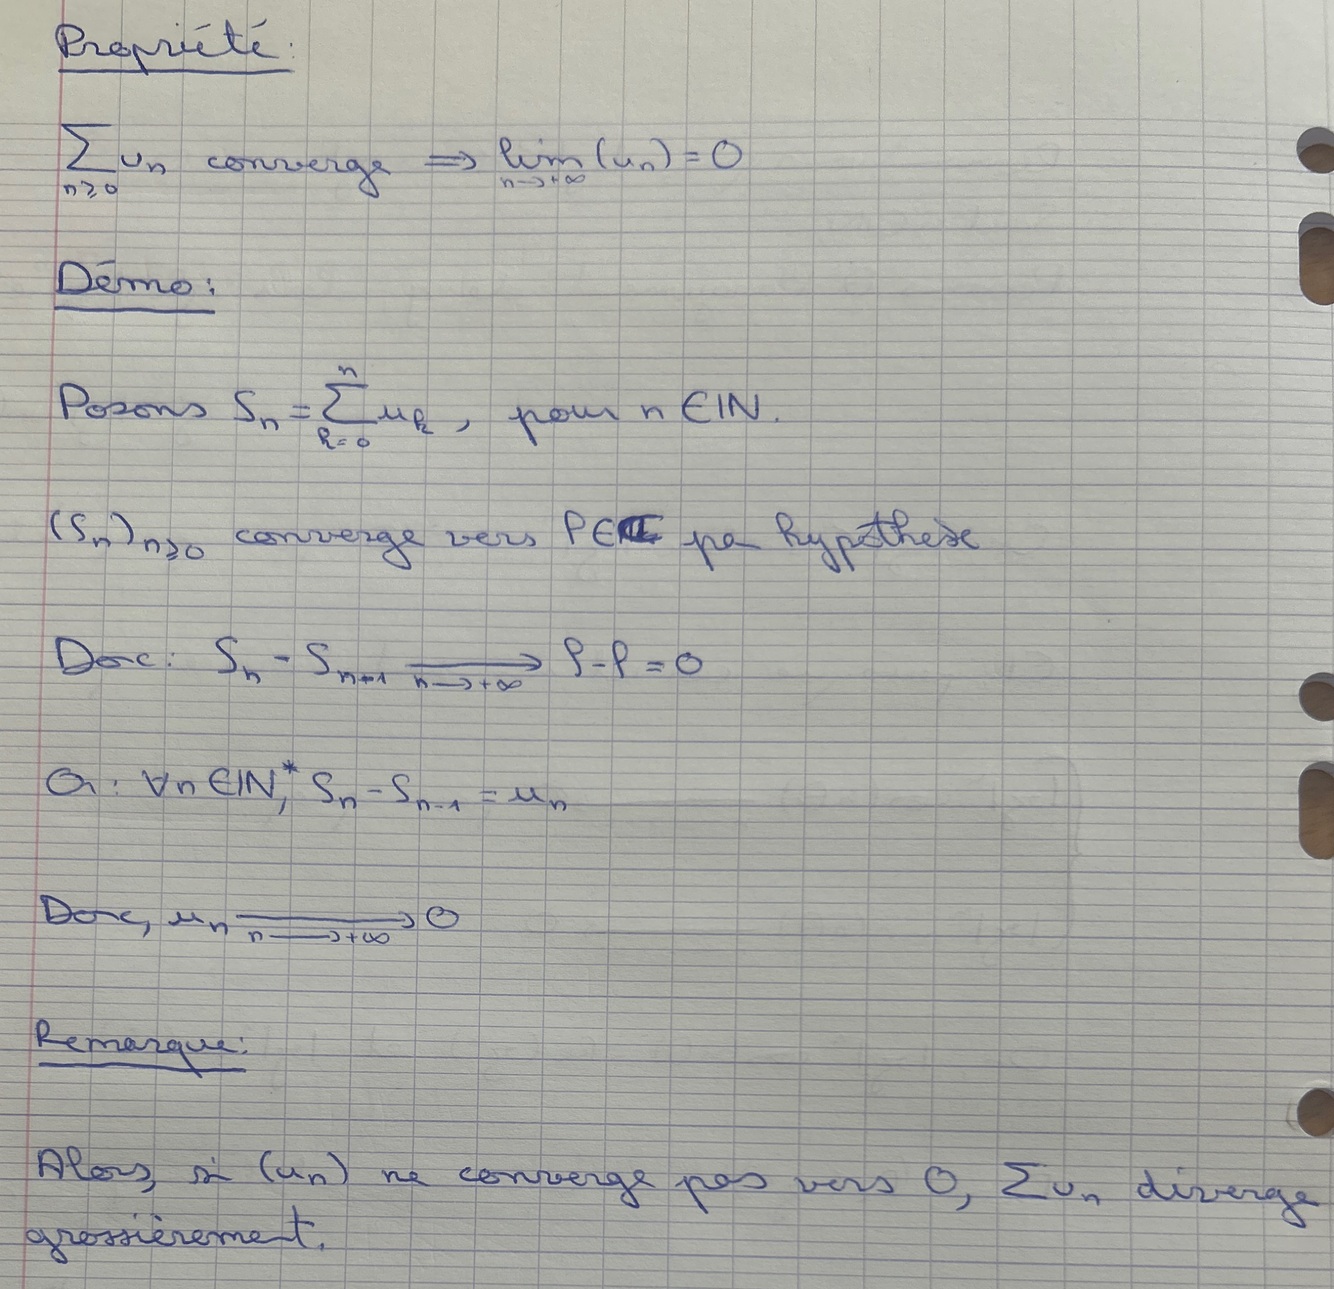 Propriété:
∑_{n≥0} u_n converge ⟹ lim_{n→+∞} (u_n) = 0
Démo:
Posons S_n = ∑_{k=0}^{n} u_k, pour n ∈ ℕ.
(S_n)_{n≥0} converge vers ℓ ∈ ℂ par hypothèse
Donc: S_n - S_{n+1} ⟶_{n→+∞} ℓ-ℓ = 0
Or: ∀n ∈ ℕ*, S_n - S_{n-1} = u_n
Donc, u_n ⟶_{n→+∞} 0
Remarque:
Alors, si (u_n) ne converge pas vers 0, ∑u_n diverge
grossièrement.